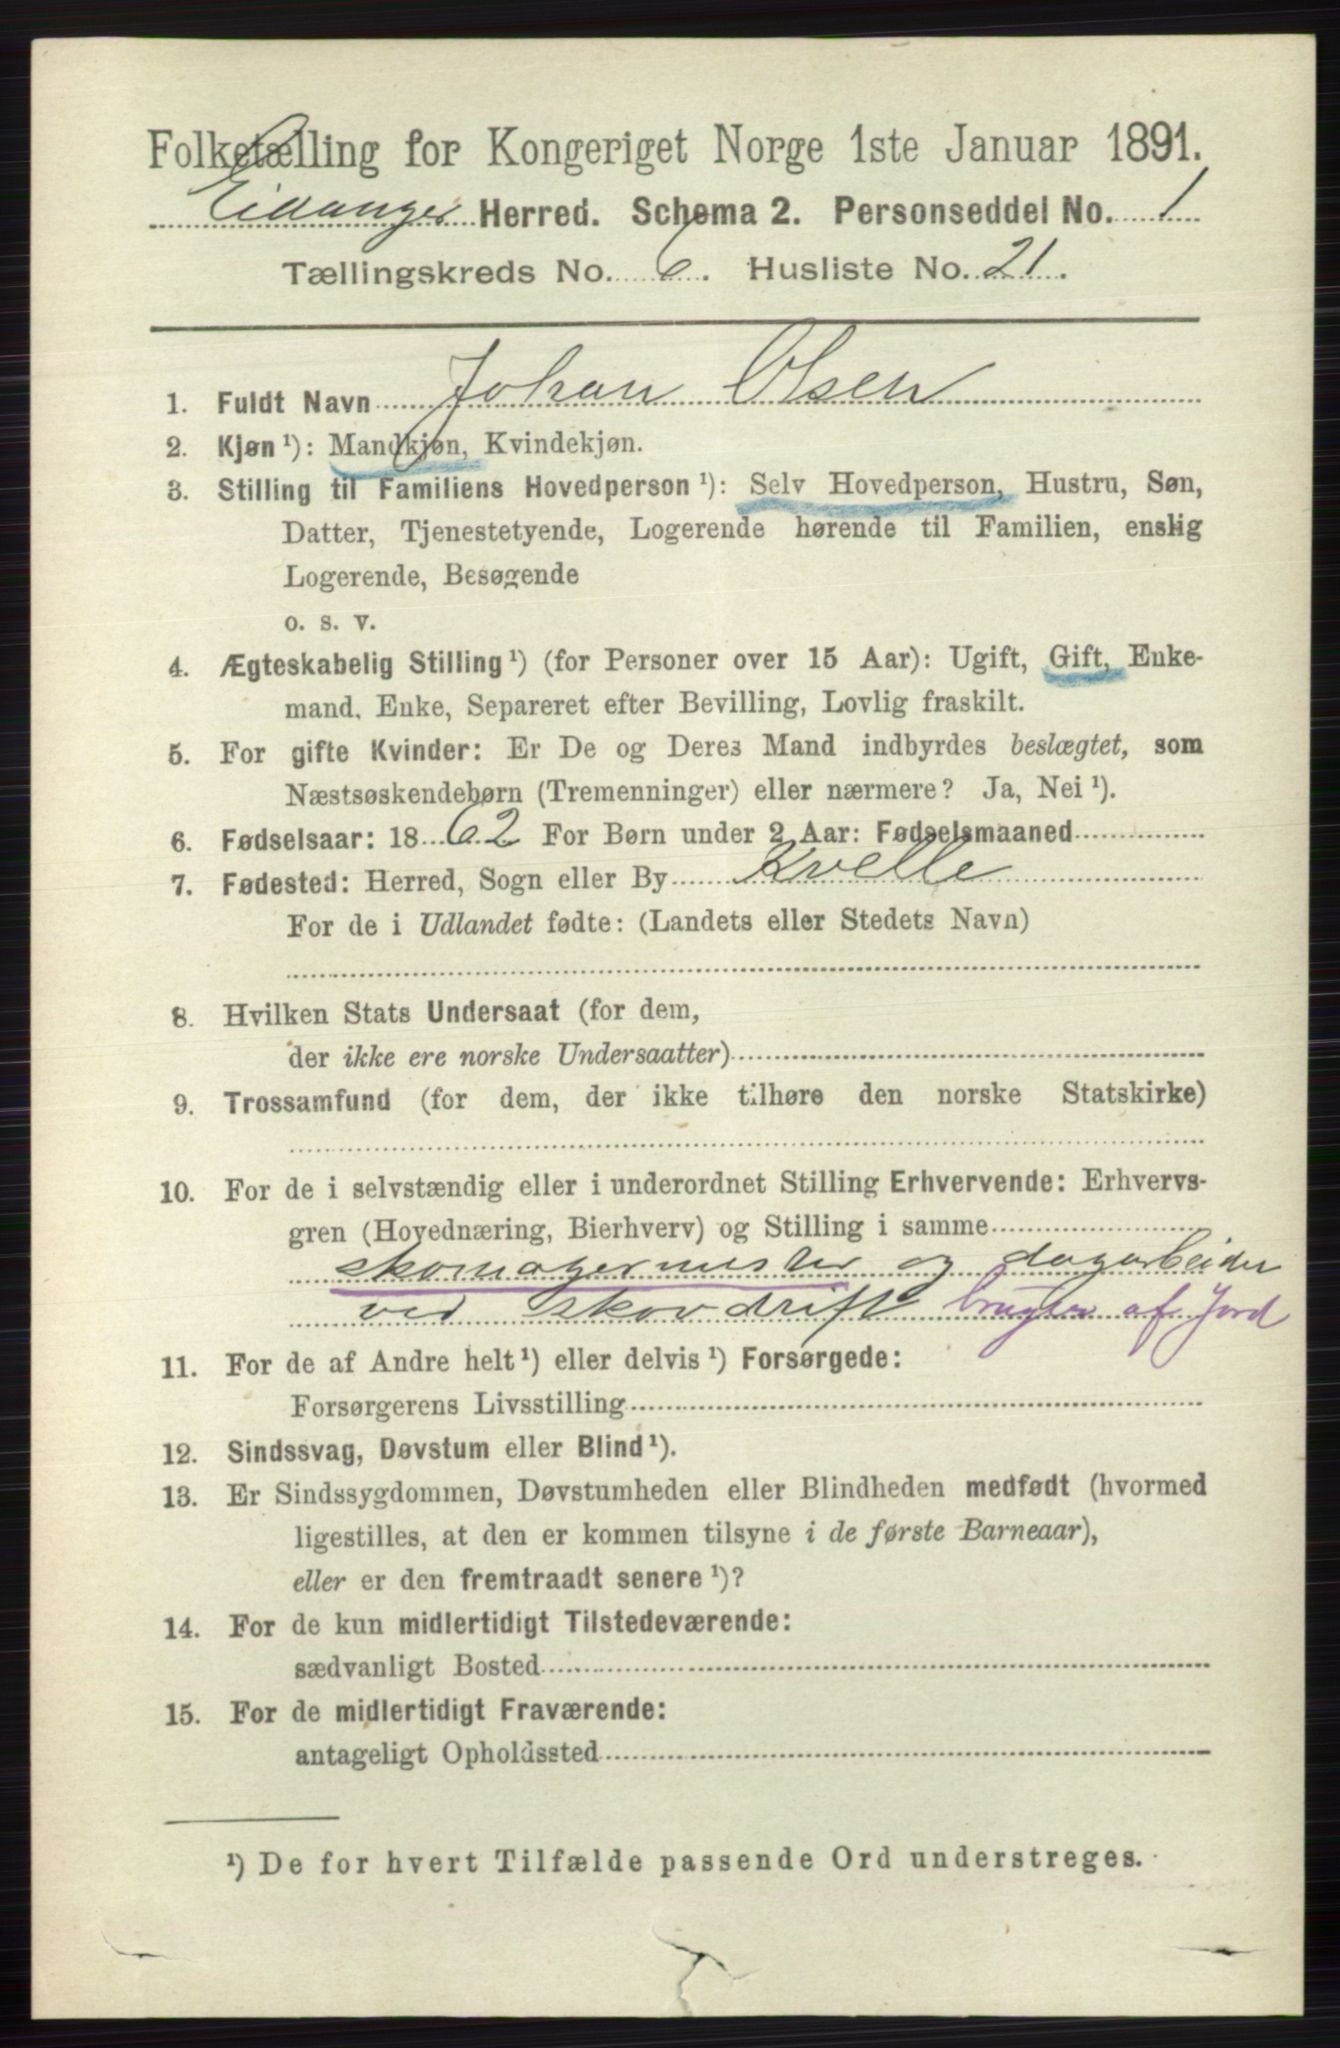 Folketælling for Kongeriget Norge 1ste Januar 1891.
Eidanger Herred. Schema 2. Personseddel No. 1
Tællingskreds No. 6. Husliste No. 21.
1. Fuldt Navn Johan Olsen
2. Kjøn ¹): Mandkjøn, Kvindekjøn.
3. Stilling til Familiens Hovedperson ¹): Selv Hovedperson, Hustru, Søn,
Datter, Tjenestetyende, Logerende hørende til Familien, enslig
Logerende, Besøgende
o. s. v.
4. Ægteskabelig Stilling ¹) (for Personer over 15 Aar): Ugift, Gift, Enke-
mand, Enke, Separeret efter Bevilling, Lovlig fraskilt.
5. For gifte Kvinder: Er De og Deres Mand indbyrdes beslægtet, som
Næstsøskendebørn (Tremenninger) eller nærmere? Ja, Nei ¹).
6. Fødselsaar: 1862 For Børn under 2 Aar: Fødselsmaaned
7. Fødested: Herred, Sogn eller By Kvelle
For de i Udlandet fødte: (Landets eller Stedets Navn)
8. Hvilken Stats Undersaat (for dem,
der ikke ere norske Undersaatter)
9. Trossamfund (for dem, der ikke tilhøre den norske Statskirke)
10. For de i selvstændig eller i underordnet Stilling Erhvervende: Erhvervs-
gren (Hovednæring, Bierhverv) og Stilling i samme
skomagermester og dagarbeider
ved skovdrift bruger af Jord
11. For de af Andre helt ¹) eller delvis ¹) Forsørgede:
Forsørgerens Livsstilling
12. Sindssvag, Døvstum eller Blind ¹).
13. Er Sindssygdommen, Døvstumheden eller Blindheden medfødt (hvormed
ligestilles, at den er kommen tilsyne i de første Barneaar),
eller er den fremtraadt senere ¹)?
14. For de kun midlertidigt Tilstedeværende:
sædvanligt Bosted
15. For de midlertidigt Fraværende:
antageligt Opholdssted
¹) De for hvert Tilfælde passende Ord understreges.